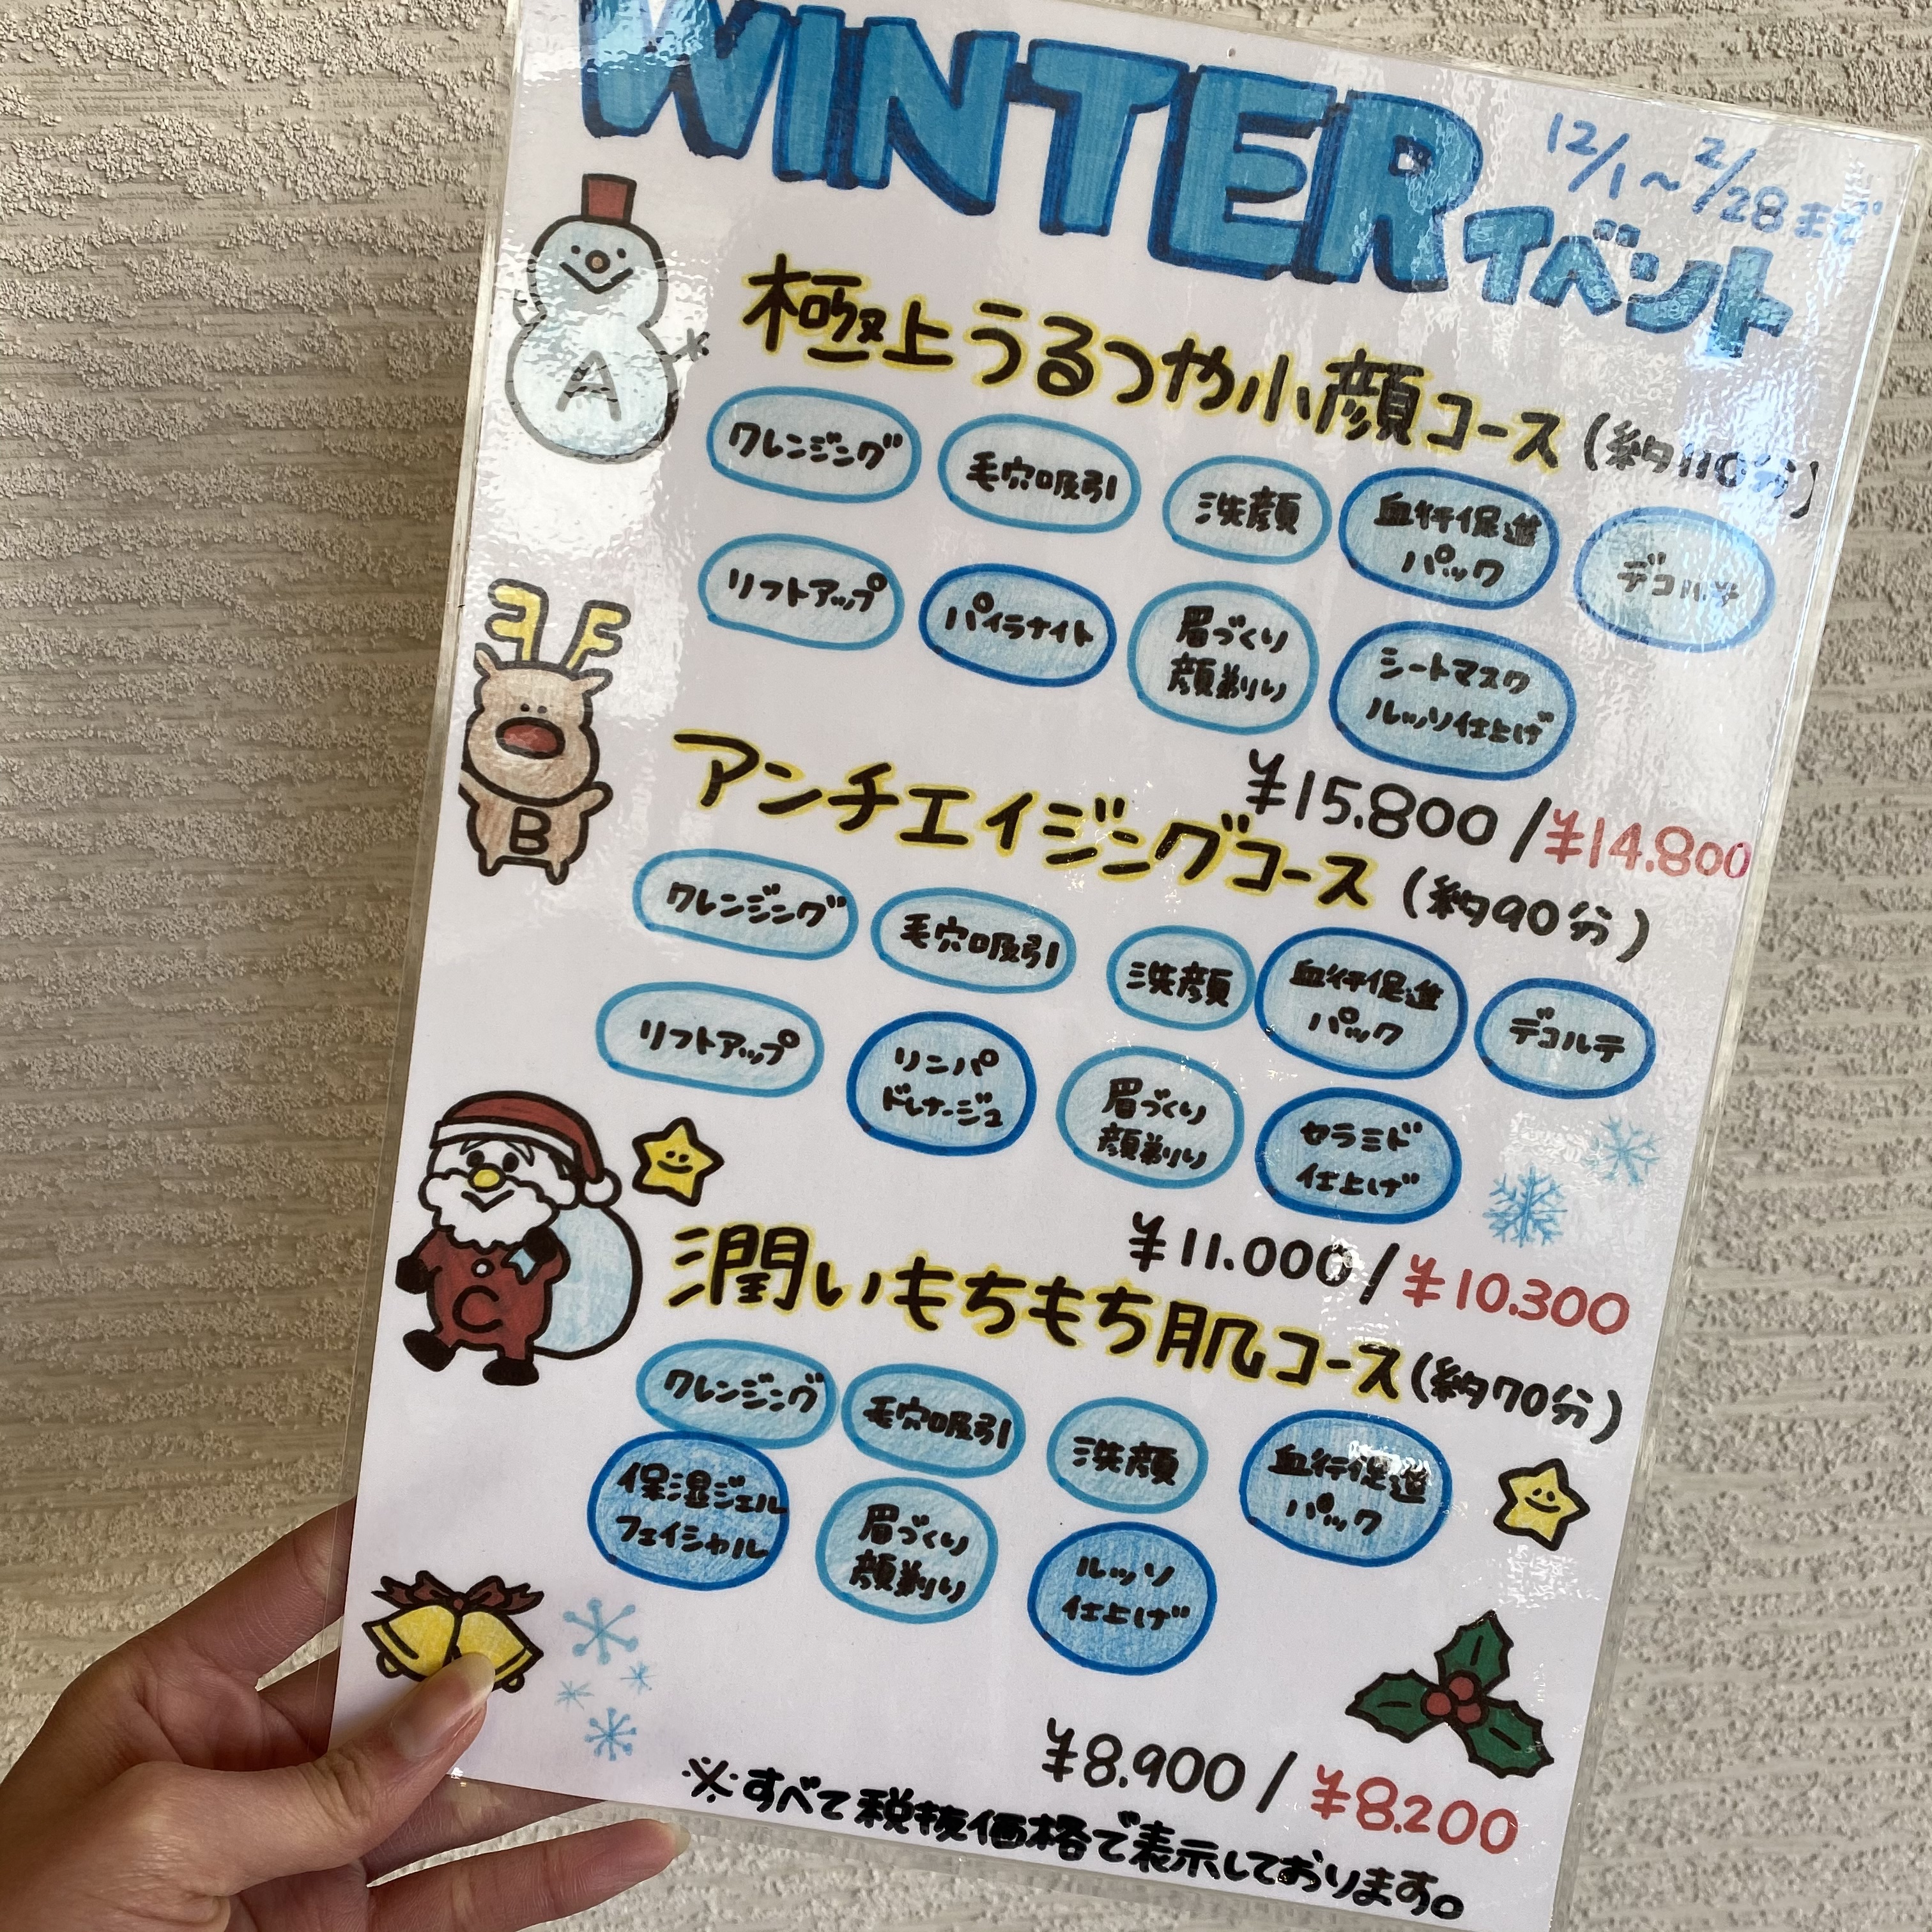 WINTER イベント
12/1〜2/28まで
A
極上うるつや小顔コース(約110分)
クレンジング
毛穴吸引
洗顔
血行促進
パック
デコルテ
リフトアップ
パイラナイト
眉づくり
顔剃り
シートマスク
ルッソ仕上げ
¥15.800/¥14.800
B
アンチエイジングコース(約90分)
クレンジング
毛穴吸引
洗顔
血行促進
パック
デコルテ
リフトアップ
リンパ
ドレナージュ
眉づくり
顔剃り
セラミド
仕上げ
¥11.000/¥10.300
C
潤いもちもち肌コース(約70分)
クレンジング
毛穴吸引
洗顔
血行促進
パック
保湿ジェル
フェイシャル
眉づくり
顔剃り
ルッソ
仕上げ
¥8.900/¥8.200
※すべて税抜価格で表示しております。